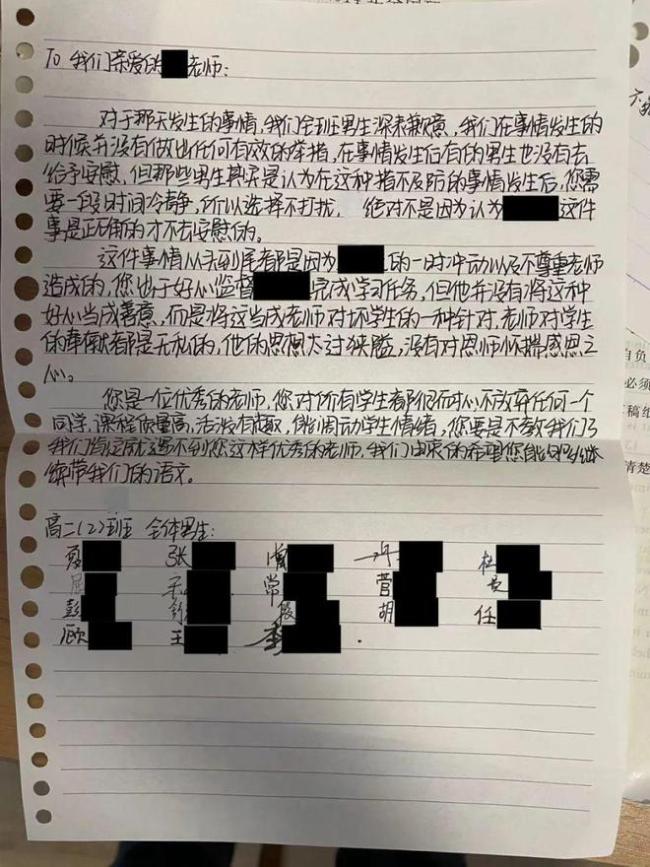 To 我们亲爱的 老师:
对于那天发生的事情,我们全班男生深表歉意,我们在事情发生的
时候并没有做出任何有效的举措,在事情发生后有的男生也没有去
给予安慰,但那些男生其实是认为在这种措不及防的事情发生后,您需
要一段时间冷静,所以选择不打扰, 绝对不是因为认为 这件
事是正确的才不去安慰的。
这件事情从头到尾都是因为 的一时冲动以及不尊重老师
造成的,您出于好心监督 完成学习任务,但他并没有将这种
好心当成善意,而是将这当成老师对坏学生的一种针对,老师对学生
的奉献都是无私的,他的思想太过狭隘,没有对恩师怀揣感恩之
心。
您是一位优秀的老师,您对所有学生都很耐心不放弃任何一个
同学,课程质量高,活泼有趣,能调动学生情绪,您要是不教我们了
我们肯定就遇不到您这样优秀的老师,我们由衷的希望您能 继
续带我们的语文。
高二(2)班 全体男生:
张 许 杜
屈 常 菅
彭 胡 任
顾 王 李
自负
必须
稿纸
清楚